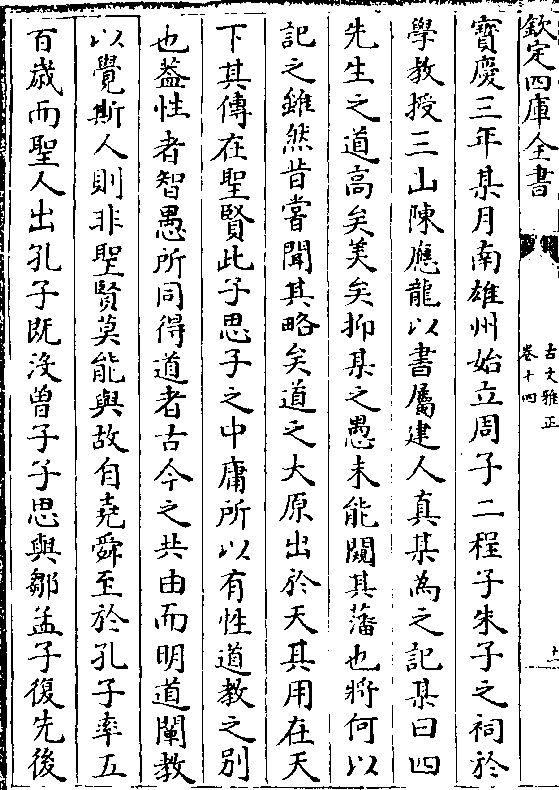 欽定四庫全書
古文雅正
卷十四
十一
寶慶三年某月南雄州始立周子二程子朱子之祠於
學教授三山陳應龍以書屬建人真某為之記某曰四
先生之道高矣美矣抑某之愚未能闚其藩也將何以
記之雖然昔嘗聞其略矣道之大原出於天其用在天
下其傳在聖賢此子思子之中庸所以有性道教之别
也葢性者智愚所同得道者古今之共由而明道闡教
以覺斯人則非聖賢莫能與故自堯舜至於孔子率五
百歳而聖人出孔子既沒曾子子思與鄒孟子復先後